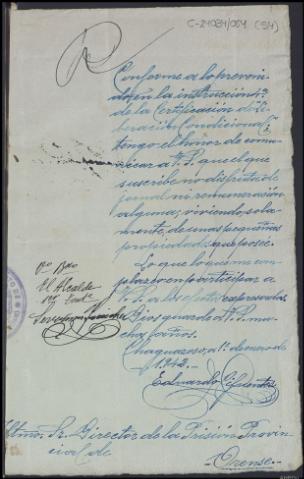 C-21034/004 (94)
Conforme a lo preveni-
do, en la instrucción 4ª
de la Certificación de li-
beración Condicional;
tengo el honor de comu-
nicar a V.S. que el que
suscribe no disfruta de
jornal ni remuneración
alguna, viviendo sola-
mente, de unas pequeñas
propiedades que posee.
Lo que lo que me com-
plazco en participar a
V.S. a los efectos expresados.
Dios guarde a V.S. mu-
chos años.
Chaguazoso, a 1º de enero de
1942.
Eduardo Cifuentes
Vº Bno
El Alcalde
Iltmo. Sr. Director de la Prisión Provin-
cial de
Orense.-